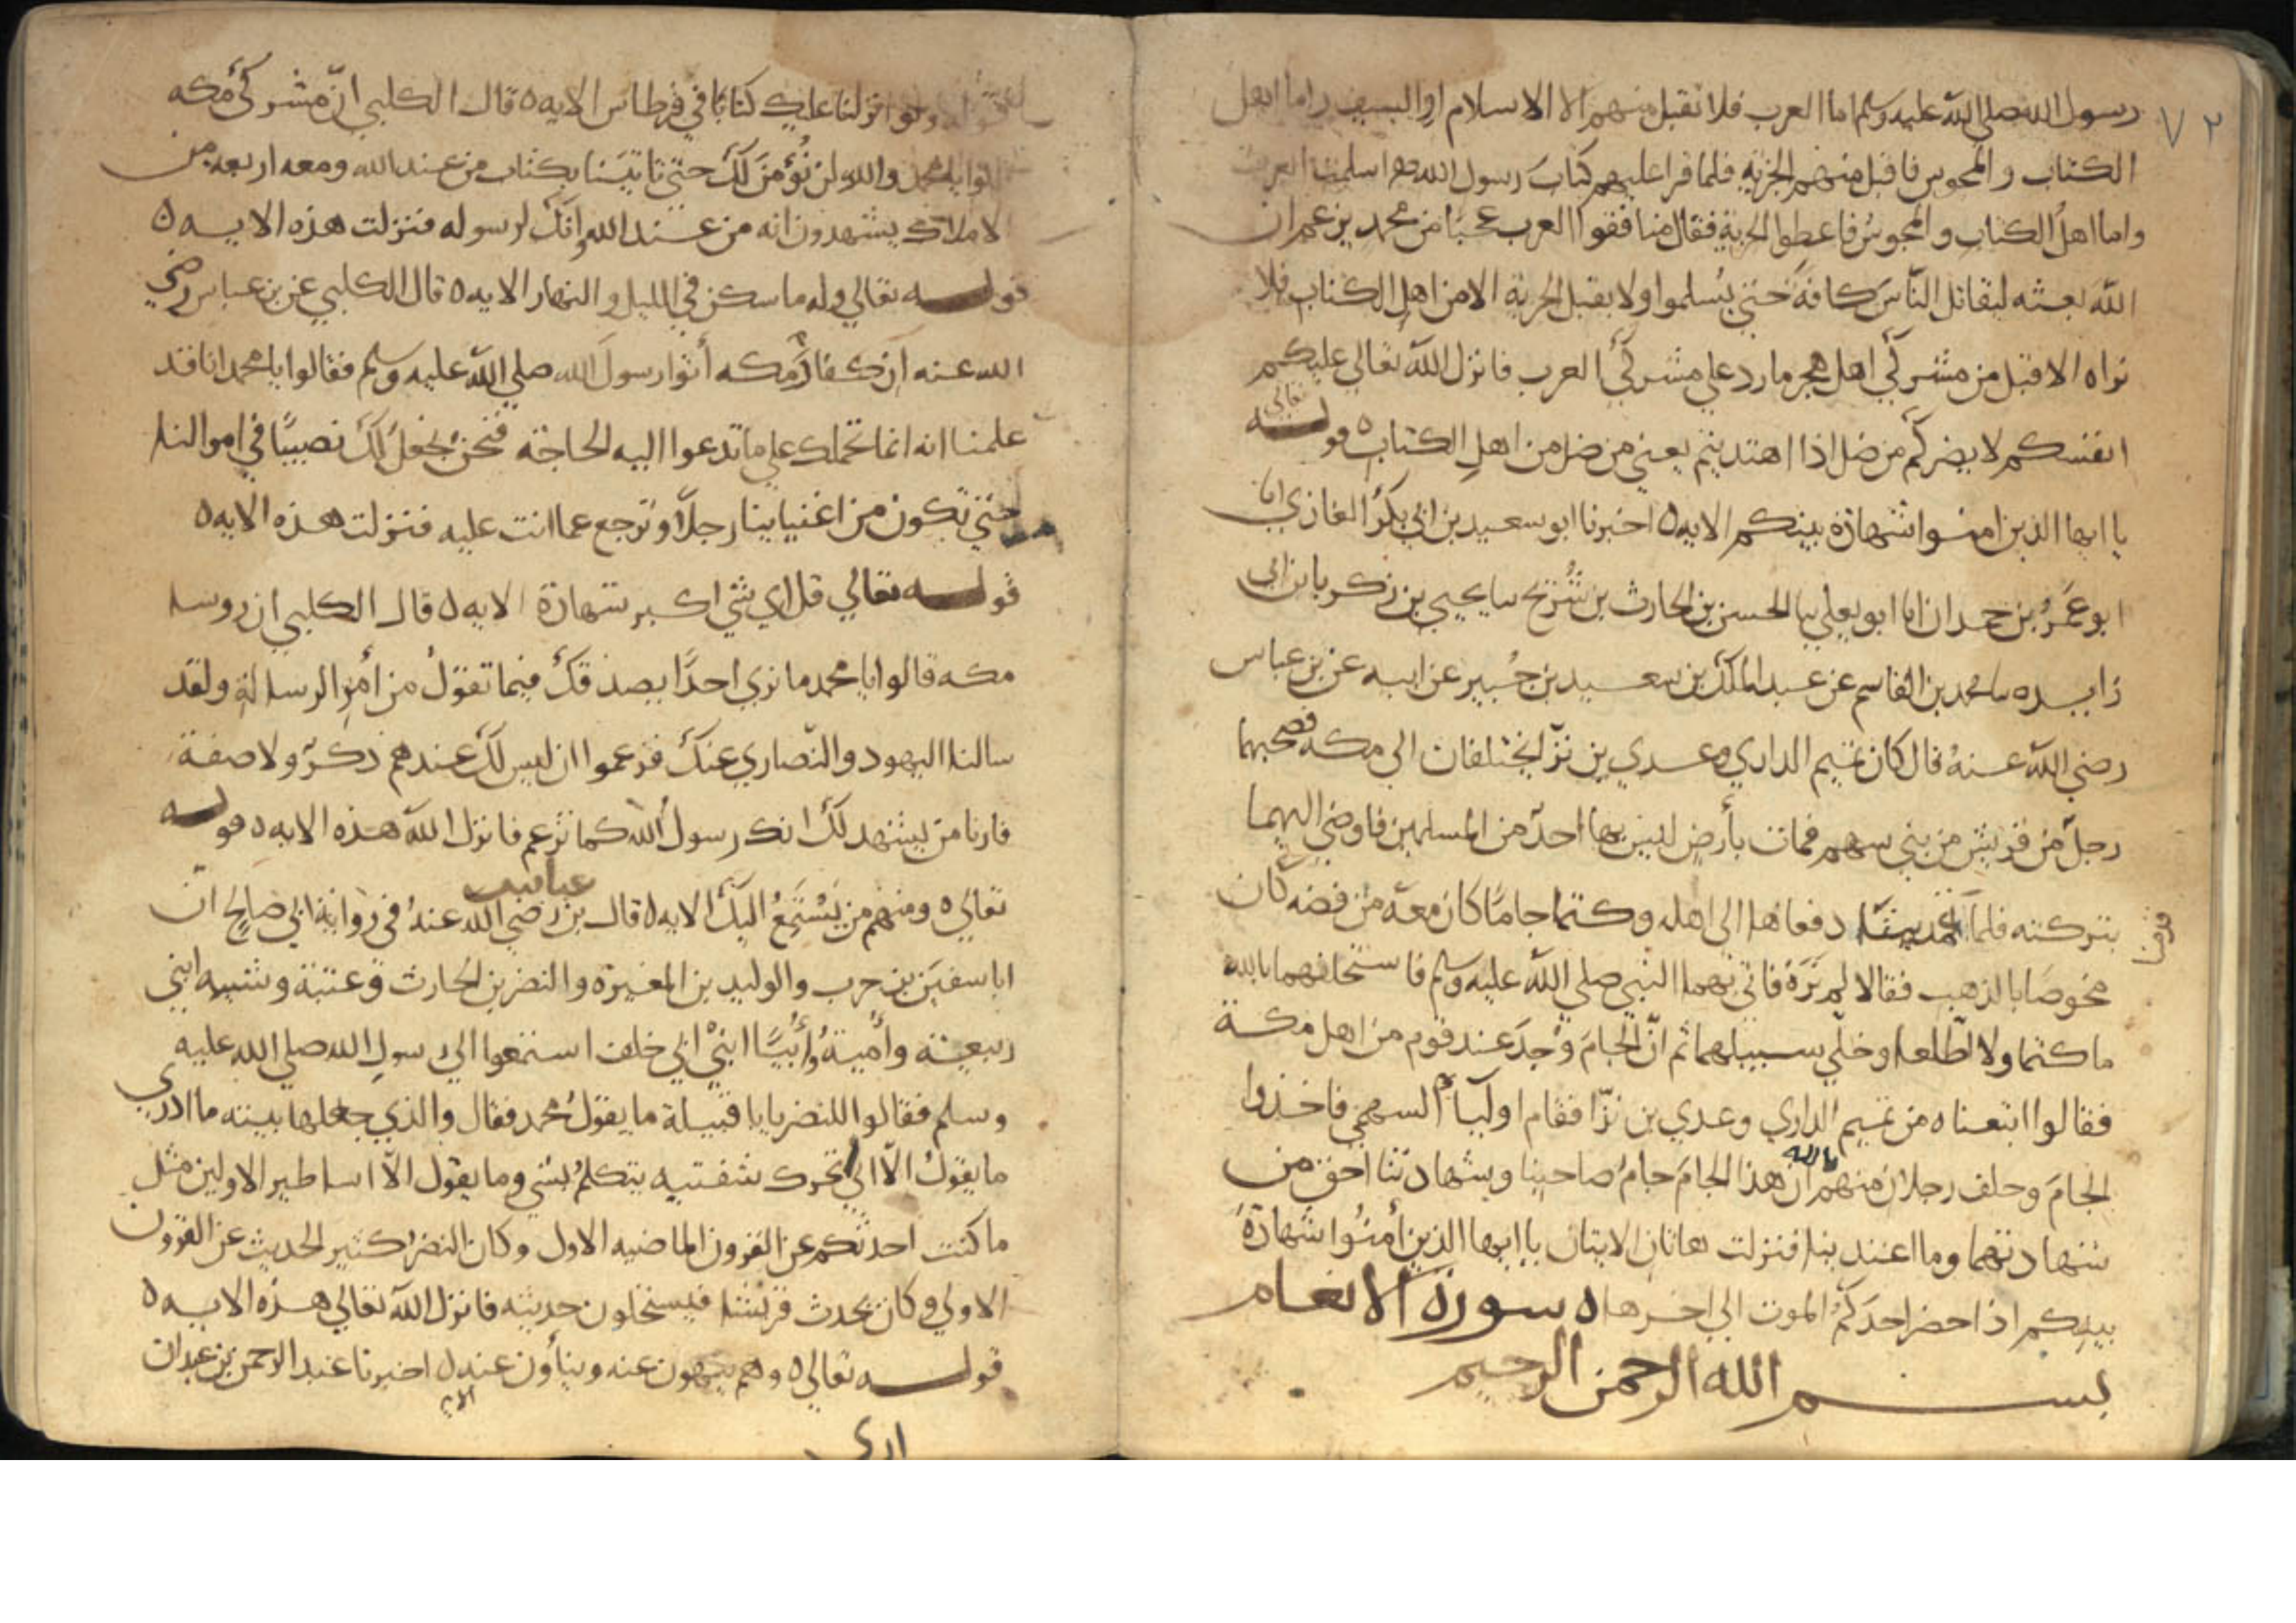 ٧٢
رسول الله صلى الله عليه وسلم اما العرب فلا تقبل منهم الا الاسلام او السيف واما اهل
الكتاب والمجوس فاقبل منهم الجزية فلما قرا عليهم كتاب رسول الله اسلمت العرب
واما اهل الكتاب والمجوس فاعطوا الجزية فقال منافقوا العرب عجبا من محمد يزعم ان
الله بعثه ليقاتل الناس كافة حتى يسلموا ولا يقبل الجزية الا من اهل الكتاب فلا
نراه الا قبل من مشركي اهل هجر ما رد على مشركي العرب فانزل الله تعالى عليكم
انفسكم لا يضركم من ضل اذا اهتديتم يعني من ضل من اهل الكتاب ٥ قوله تعالى
يا ايها الذين امنوا شهادة بينكم الايه ٥ اخبرنا ابو سعيد بن ابي بكر الغازي انا
ابو عمرُ بن حمدان انا ابو يعلي سا الحسن بن الحارث بن شُريح سا يحيي بن زكريا بن ابي
زايده سا محمد بن القاسم عن عبد الملك بن سعيد بن جُبير عن ابيه عن بن عباس
رضي الله عنهُ قال كان تميم الداري وعدي بن بزّا يختلفان الى مكه فصحبهما
رجلٌ من قريش من بني سهم فمات بأرض ليس بها احدٌ من المسلمين فاوصي اليهما
بتركته فلما قدمنا دفعاها الى اهله وكتما جامًا كان معه من فضه كان
مخوصًا بالذهب فقالا لم نَرَهُ فاتي بهما النبي صلى الله عليه وسلم فاستحلفهما بالله
ما كتما ولا اطّلعا وخلّي سبيلهما ثم انّ الجامَ وُجِدَ عند قوم من اهل مكة
فقالوا ابتعناه من تميم الداري وعدي بن بزّا فقام اوليآ السهمي فاخذوا
الجامَ وحلف رجلان منهم بالله ان هذا الجامَ جامُ صاحبنا وشهادتنا احق من
شهادتهما وما اعتدينا فنزلت هاتان الايتان يا ايها الذين أمنُوا شهادةُ
بينكم اذا حضر احدَكمُ الموت الى اخرها ٥ سورة الانعام
بسم الله الرحمن الرحيم
ولو انزلنا عليك كتابًا في قرطاس الايه ٥ قال الكلبي انّ مشركي مكه
قالوا يا محمد والله لن نُؤمنَ لكَ حتي تاتيَنا بكتاب من عند الله ومعه اربعه من
الاملاك يشهدون انه من عند الله وانّك لرسوله فنزلت هذه الايه ٥
قوله تعالي وله ما سكن في الليل والنهار الايه ٥ قال الكلبي عن بن عباس رضي
الله عنه ان كفار مكه أتوا رسول الله صلى الله عليه وسلم فقالوا يا محمد انا قد
علمنا انه انما تحملك علي ما تدعوا اليه الحاجة فنحن نجعلُ لك نصيبًا في اموالنا
حتي تكون من اغنيايينا رجلاً وترجع عما انت عليه فنزلت هذه الايه ٥
قوله تعالي قل اي شي اكبر شهادة الايه ٥ قال الكلبي ان روسا
مكه قالوا يا محمد ما نري احدًا يصدقك فيما تقولُ من أمرِ الرسالةِ ولقد
سالنا اليهود والنّصاري عنكَ فزعموا ان ليس لكَ عندهم ذكرٌ ولا صفة
فارنا من يشهد لكَ انك رسولُ الله كما تزعم فانزل اللهُ هذه الايه ٥ قوله
تعالي ٥ ومنهم من يَسْتَمِعُ اليكَ الايه ٥ قال بن عباس رضي الله عنهُ في رواية ابي صالح انّ
ابا سفيَن بن حرب والوليد بن المغيرة والنضر بن الحارث وعتبة وشيبه ابني
ربيعة وأميةُ وأُبيًّا ابنيْ خلف استمعوا الى رسول الله صلى الله عليه
وسلم فقالوا للنضر يابا قتيلة ما يقولُ محمد فقال والذي جعلها بينه ما ادري
ما يقول الاّ اني تحرك شفتيه يتكلمُ بشي وما يقول الاّ اساطير الاولين مثل
ما كنت احدثكم عن القرون الماضيه الاول وكان النضرُ كثير الحديث عن القرون
الاولي وكان يحدث قريشا فيستحلون حديثه فانزل اللهُ تعالي هذه الايه ٥
قوله تعالي ٥ وهم ينهون عنه وينأون عنه ٥ الايه اخبرنا عبد الرحمن بن عبدان